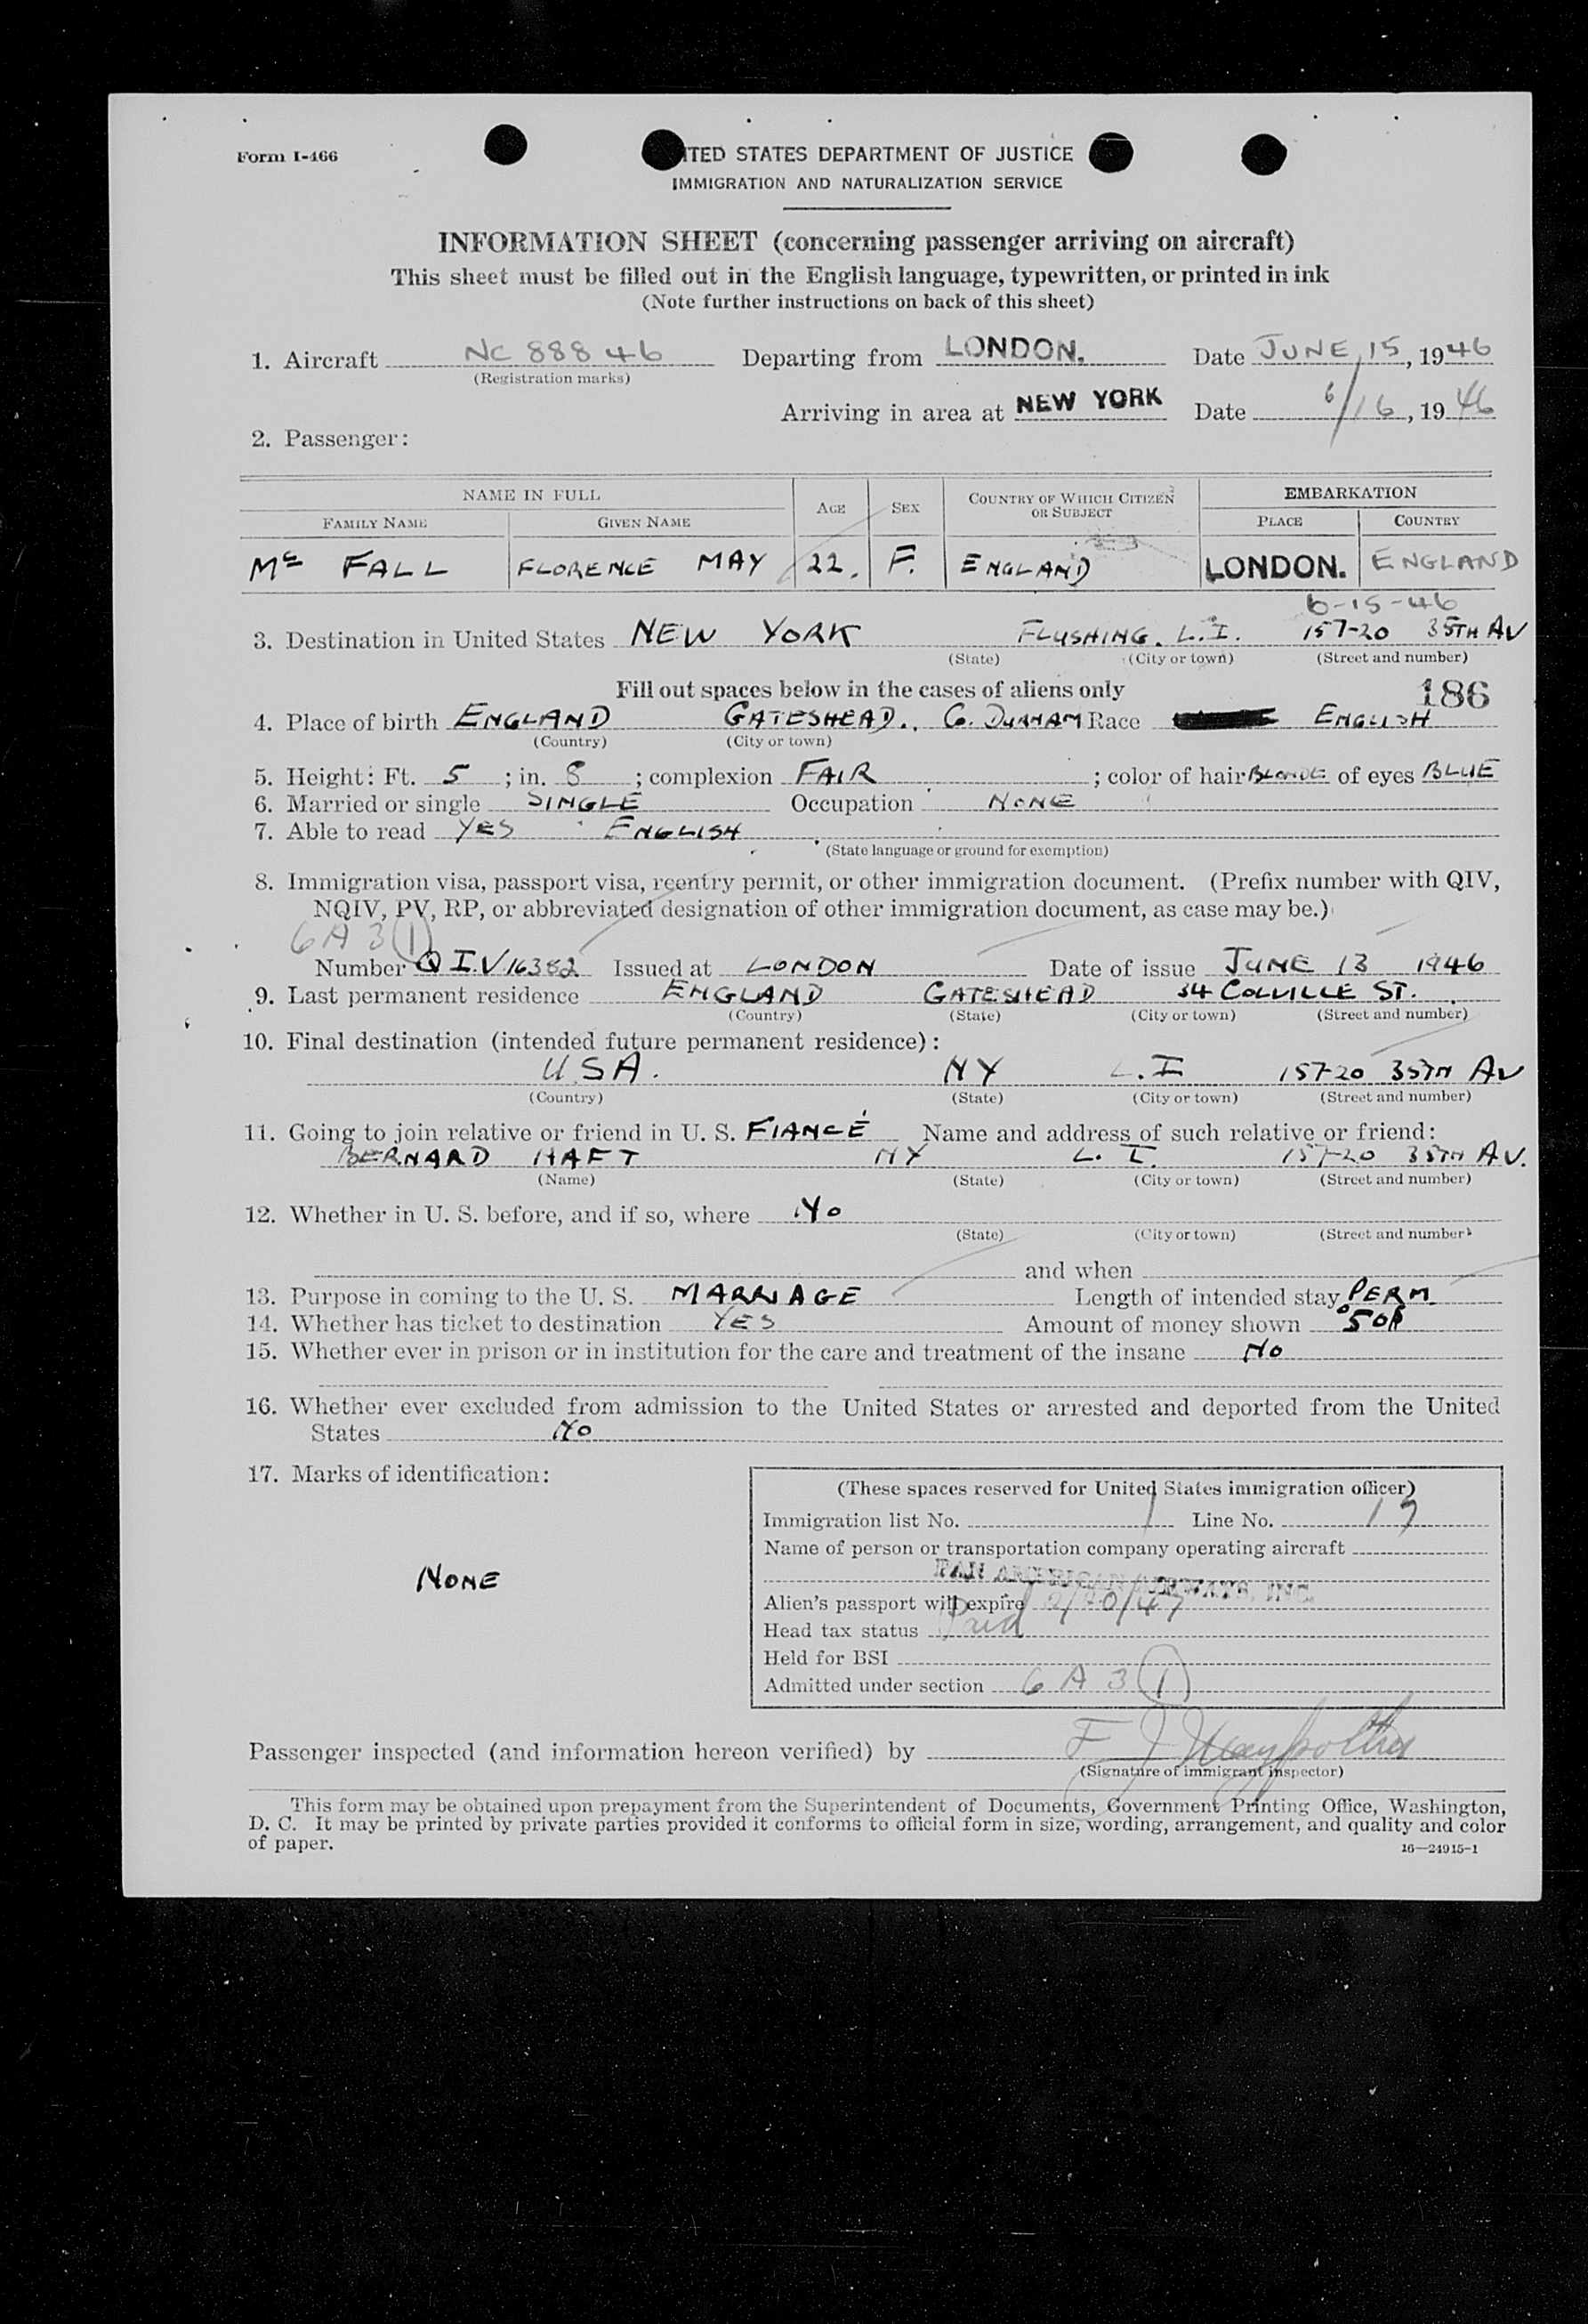 Form I-466
ITED STATES DEPARTMENT OF JUSTICE
IMMIGRATION AND NATURALIZATION SERVICE
INFORMATION SHEET (concerning passenger arriving on aircraft)
This sheet must be filled out in the English language, typewritten, or printed in ink
(Note further instructions on back of this sheet)
1. Aircraft NC 88846 Departing from LONDON. Date JUNE 15, 1946
(Registration marks)
Arriving in area at NEW YORK Date 6/16, 1946
2. Passenger:
NAME IN FULL AGE SEX COUNTRY OF WHICH CITIZEN OR SUBJECT EMBARKATION
FAMILY NAME GIVEN NAME PLACE COUNTRY
Mc FALL FLORENCE MAY 22. F. ENGLAND LONDON. ENGLAND
6-15-46
3. Destination in United States NEW YORK FLUSHING. L.I. 157-20 35TH AV
(State) (City or town) (Street and number)
Fill out spaces below in the cases of aliens only 186
4. Place of birth ENGLAND GATESHEAD., Co. DURHAM Race ENGLISH
(Country) (City or town)
5. Height: Ft. 5 ; in. 8 ; complexion FAIR ; color of hair BLONDE of eyes BLUE
6. Married or single SINGLE Occupation NONE
7. Able to read YES ENGLISH
(State language or ground for exemption)
8. Immigration visa, passport visa, reentry permit, or other immigration document. (Prefix number with QIV,
NQIV, PV, RP, or abbreviated designation of other immigration document, as case may be.)
6 A 3 (1)
Number Q I.V 16382 Issued at LONDON Date of issue JUNE 13 1946
9. Last permanent residence ENGLAND GATESHEAD 34 COLVILLE ST.
(Country) (State) (City or town) (Street and number)
10. Final destination (intended future permanent residence):
U.S.A. NY L.I 157-20 35TH AV
(Country) (State) (City or town) (Street and number)
11. Going to join relative or friend in U. S. FIANCÉ Name and address of such relative or friend:
BERNARD HAFT NY L. I. 157-20 35TH AV.
(Name) (State) (City or town) (Street and number)
12. Whether in U. S. before, and if so, where No
(State) (City or town) (Street and number)
and when
13. Purpose in coming to the U. S. MARRIAGE Length of intended stay PERM.
14. Whether has ticket to destination YES Amount of money shown
15. Whether ever in prison or in institution for the care and treatment of the insane No
16. Whether ever excluded from admission to the United States or arrested and deported from the United
States No
17. Marks of identification:
NONE
(These spaces reserved for United States immigration officer)
Immigration list No. 1 Line No. 17
Name of person or transportation company operating aircraft
PAN AMERICAN AIRWAYS, INC.
Alien's passport will expire
Head tax status Paid
Held for BSI
Admitted under section 6 A 3 (1)
Passenger inspected (and information hereon verified) by F J
(Signature of immigrant inspector)
This form may be obtained upon prepayment from the Superintendent of Documents, Government Printing Office, Washington,
D. C. It may be printed by private parties provided it conforms to official form in size, wording, arrangement, and quality and color
of paper.
16—24915-1